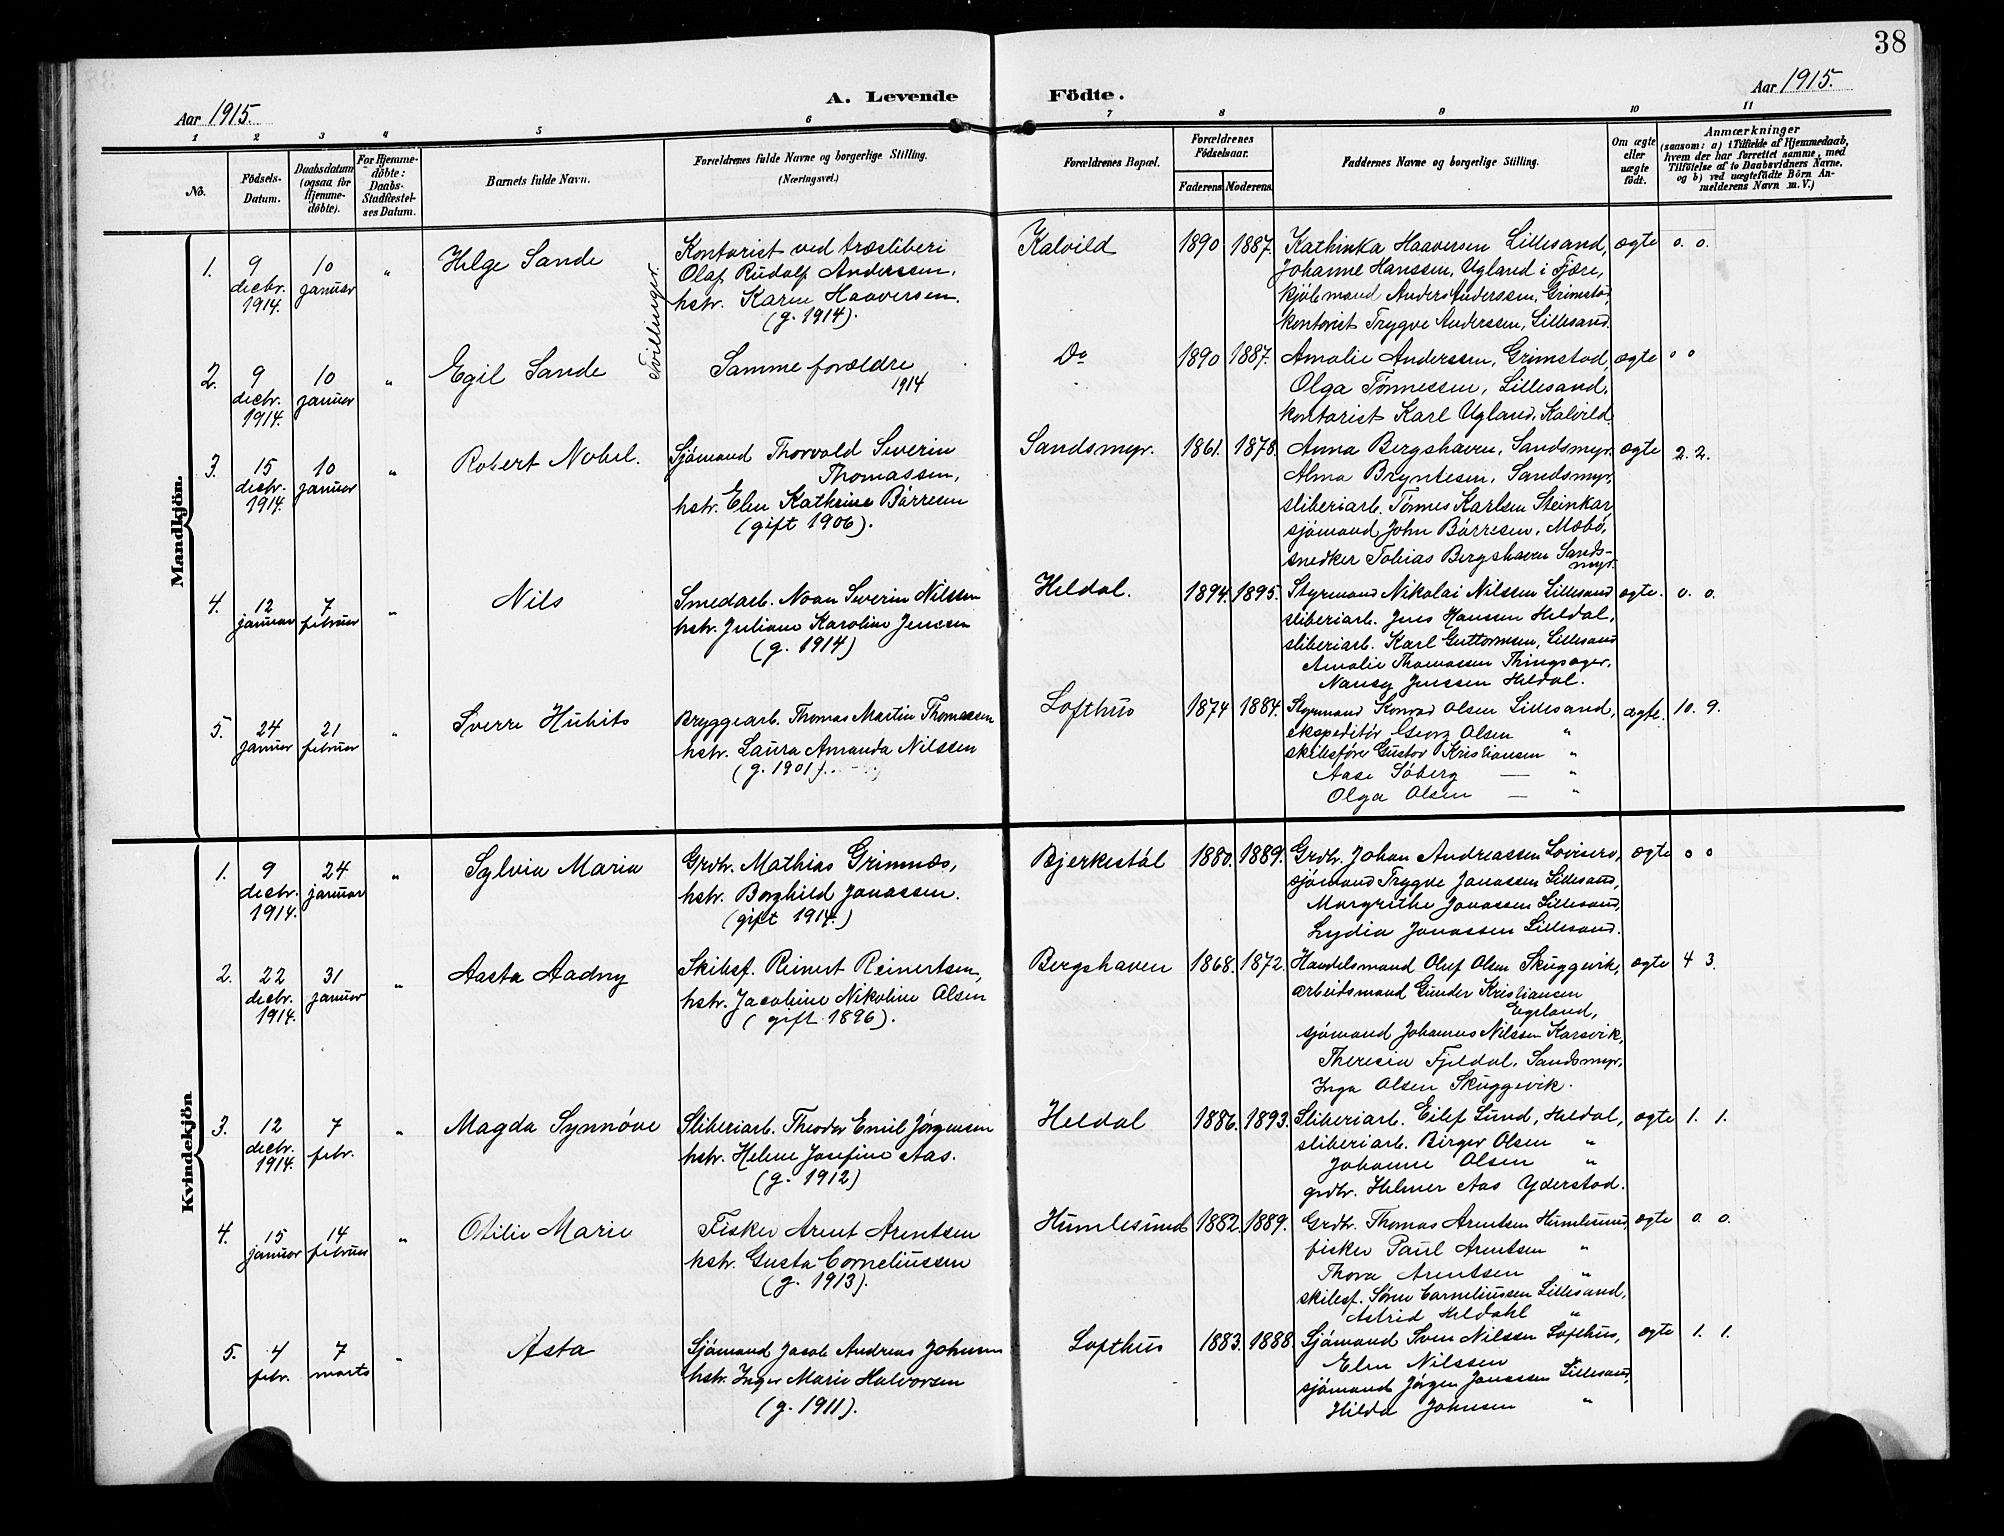 38
Aar 1915.
A. Levende Födte.
Aar 1915.
1 2 3 4 5 6 7 8 9 10 11
No.
Födsels-Datum.
Daabsdatum (ogsaa for Hjemmedöbte).
For Hjemmedöbte: Daabs-Stadfæstelses Datum.
Barnets fulde Navn.
Forældrenes fulde Navne og borgerlige Stilling.
(Næringsvei.)
Forældrenes Bopæl.
Forældrenes Födselsaar.
Faderens. Moderens.
Faddernes Navne og borgerlige Stilling.
Om ægte eller uægte födt.
Anmærkninger
(saasom: a) i Tilfælde af Hjemmedaab, hvem der har forrettet samme, med Tilföielse af to Daabsvidners Navne, og b) ved uægtefödte Börn Anmelderens Navn m. V.)
Mandkjön.
1. 9 decbr. 1914. 10 januar " Helge Sande
Tvillinger.
Kontorist ved træsliberi
Olaf Rudolf Anderssen,
hstr. Karen Haaversen.
(g. 1914).
Kalvild 1890 1887.
Kathinka Haaversen Lillesand,
Johanne Hanssen, Ugland i Fjære,
kjöbmand Anders Anderssen, Grimstad,
kontorist Trygve Anderssen, Lillesand.
ægte 0. 0.
2. 9 decbr. 1914. 10 januar " Egil Sande
Samme forældre
1914
Do 1890 1887.
Amalie Anderssen, Grimstad,
Olga Tønnessen, Lillesand.
kontorist Karl Ugland, Kalvild.
ægte 0 0
3. 15 decbr. 1914. 10 januar " Robert Nobel.
Sjömand Thorvald Severin
Thomassen,
hstr. Elen Kathrine Börresen
(gift 1906).
Sandsmyr. 1861. 1878.
Anna Bergshaven, Sandsmyr.
Alma Bryntesen, Sandsmyr,
sliberiarb. Tönnes Karlsen Steinkar,
sjömand John Börresen, Mæbö,
snedker Tobias Bergshaven Sands-
myr.
ægte 2. 2.
4. 12 januar 7 februar " Nils
Smedarb. Noan Severin Nilssen
hstr. Juliane Karoline Jenssen
(g. 1914)
Heldal. 1894. 1895.
Styrmand Nikolai Nilssen Lillesand
sliberiarb. Jens Hanssen Heldal,
sliberiarb. Karl Guttormsen, Lillesand
Amalie Thomassen Thingsager,
Nancy Jenssen Heldal.
ægte. 0. 0.
5. 24 januar 21 februar " Sverre Hubits
Bryggearb. Thomas Martin Thomassen
hstr. Laura Amanda Nilssen
(g. 1901)
Lofthus 1874 1884.
Styrmand Konrad Olsen Lillesand,
ekspeditör Georg Olsen "
skibsförer Gustav Kristiansen "
Aase Söberg — "
Olga Olsen — "
ægte. 10. 9.
Kvindekjön
1. 9 decbr. 1914. 24 januar " Sylvia Maria
Grdbr. Mathias Grimnæs,
hstr. Borghild Jonassen.
(gift 1914.)
Bjerkestöl 1880. 1889.
Grdbr. Johan Andreassen
sjömand Trygve Jonassen Lillesand,
Margrethe Jonassen Lillesand,
Lydia Jonassen Lillesand.
ægte 0 0
2. 22 decbr. 1914. 31 januar " Aasta Aadny
Skibsf. Reinert Reinertsen,
hstr. Jacobine Nikoline Olsen
(gift 1896).
Bergshaven 1868. 1872.
Handelsmand Oluf Olsen Skuggevik,
arbeidsmand Gunder Kristiansen
Egeland,
sjömand Johannes Nilssen Karsvik,
Theresia Fjeldal, Sandsmyr,
Inga Olsen Skuggevik.
ægte 4 3.
3. 12 decbr. 1914. 7 febr. " Magda Synnøve
Sliberiarb. Theodor Emil Jørgensen
hstr. Helene Josefine Aas.
(g. 1912)
Heldal 1886. 1893.
Sliberiarb. Eilef Lund, Heldal,
sliberiarb. Birger Olsen "
Johanne Olsen "
grdbr. Helmer Aas Yderstad.
ægte 1. 1.
4. 15 januar 14 februar " Otilie Marie
Fisker Arent Arentsen
hstr. Gusta Corneliussen
(g. 1913).
Humlesund 1882. 1889.
Grdbr. Thomas Arentsen Humlesund
fisker Paul Arentsen "
Thora Arentsen "
skibsf. Søren Corneliussen Lillesand,
Astrid Heldahl "
ægte 0. 0.
5. 4 febr. 7 marts " Asta
Sjömand Jacob Andreas Johnsen
hstr. Inger Marie Halvorsen
(g. 1911).
Lofthus 1883. 1888.
Sjömand Sven Nilssen Lofthus,
Elen Nilssen
sjömand Jørgen Jonassen Lillesand,
Hilda Johnsen "
ægte 1. 1.